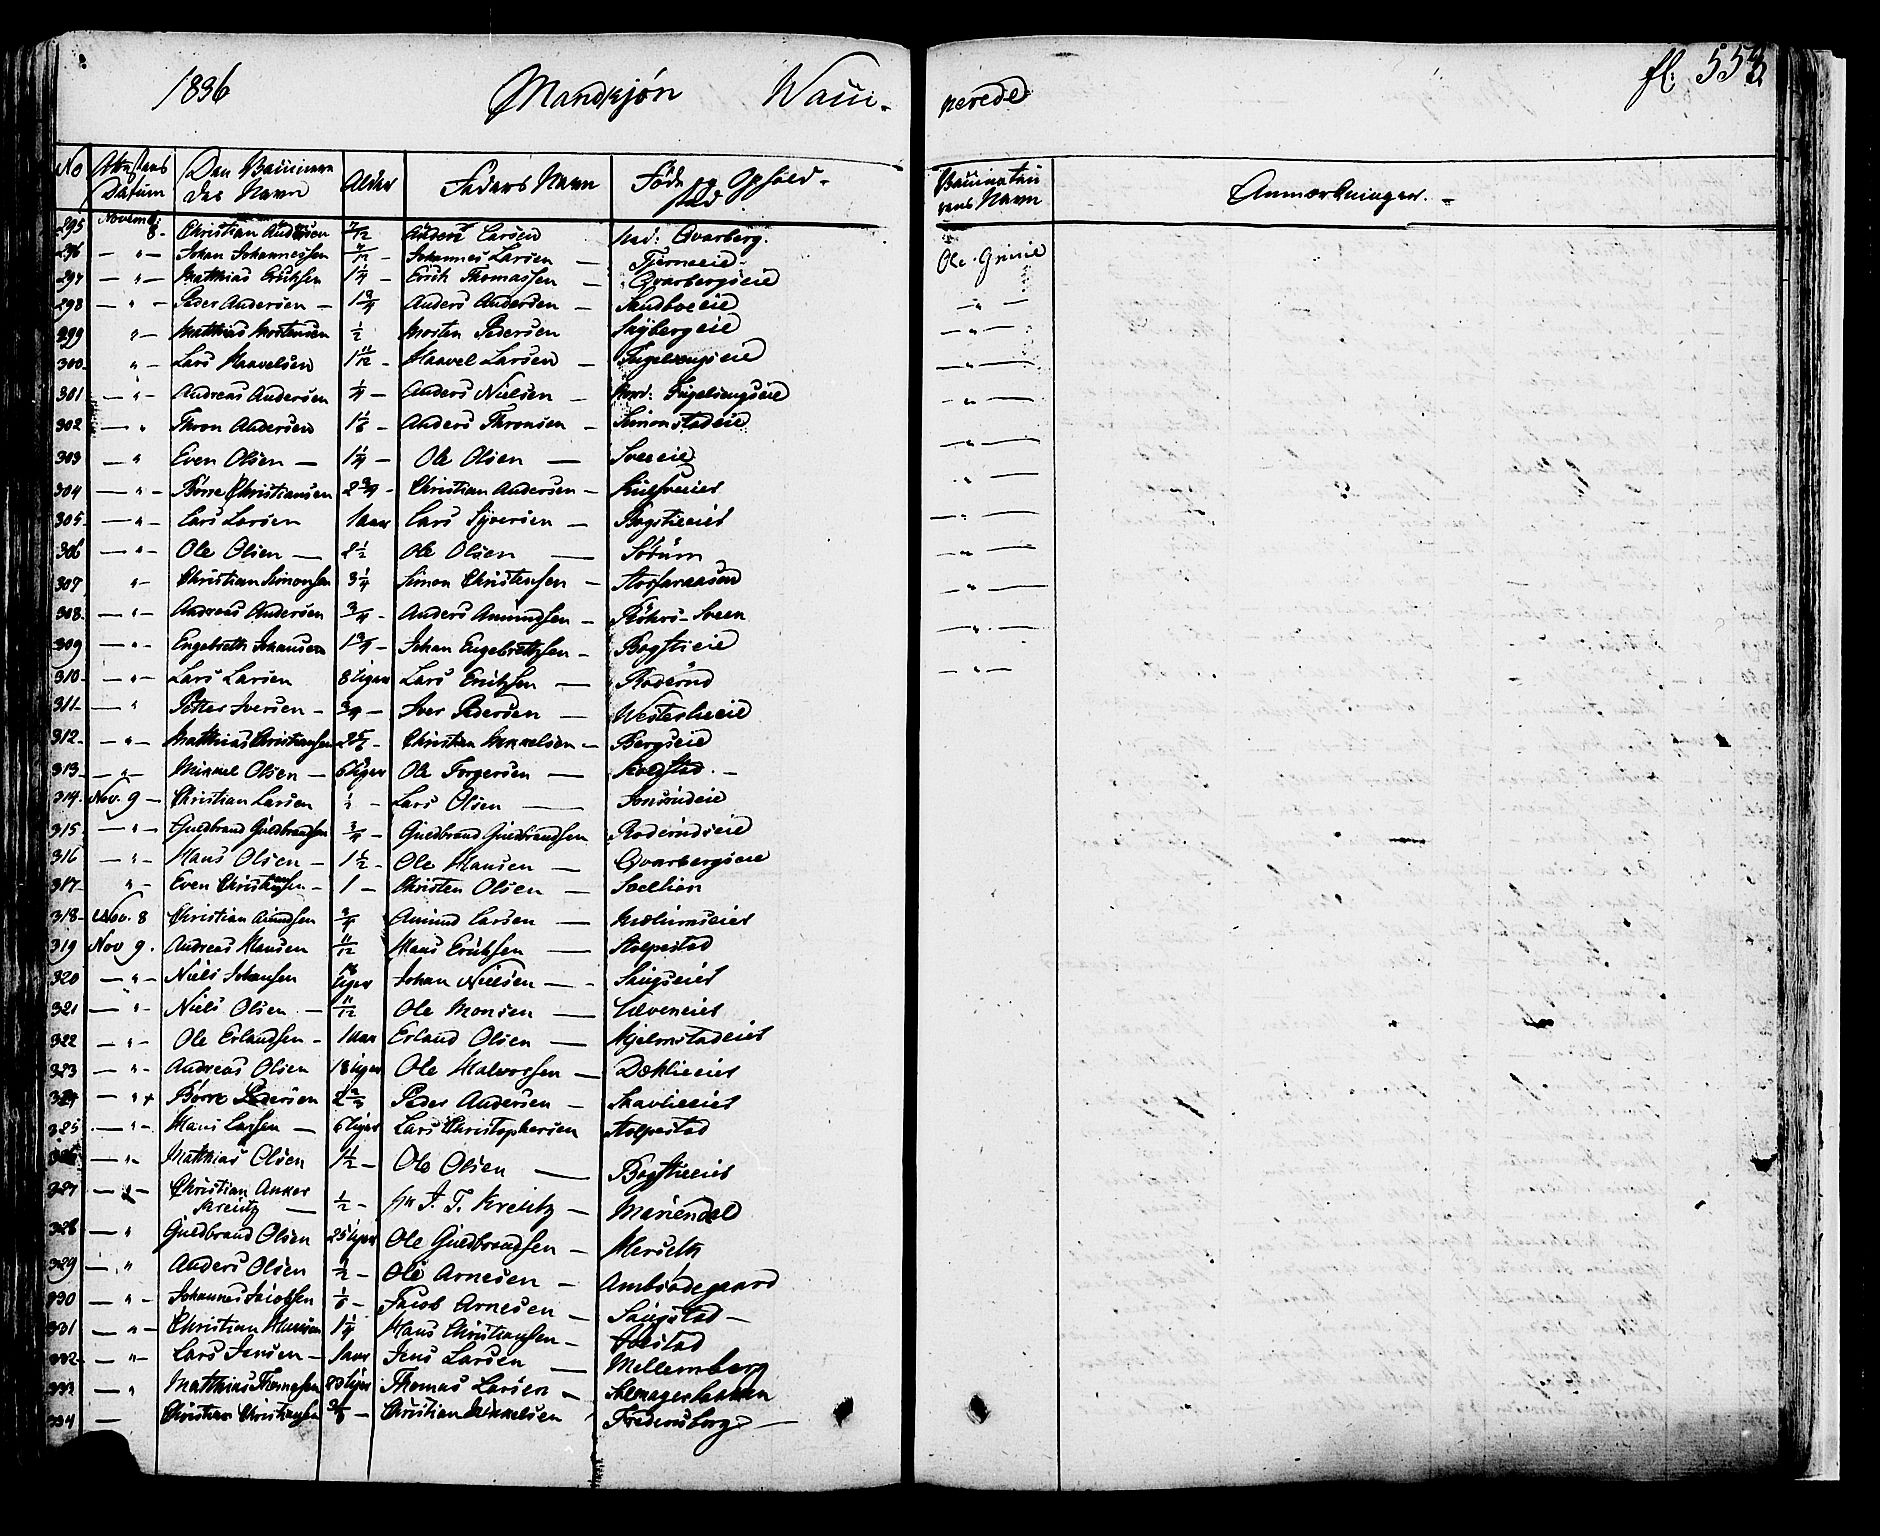 1836 Mandkjøn Vacci-
nerede
fl. 553
No Attestens Datum Den Vaccineredes Navn Alder Faders Navn Føde og Opholdsted. Vaccinateurens Navn Anmærkninger.
295 Novemb. 8. Christian Andersen 7/12 Anders Larsen Ned: Qvarberg.
296 — " — Johan Johannessen 7/12 — Johannes Larsen — Tjerneeie Ole Grinie
297 — " — Matthias Erichsen 1 1/4 — Erich Thomassen — Qvarbergseie
298 — " — Peder Andersen — 1 3/4 Anders Andersen — Sandboeeie — " —
299 " — Matthias Mortensen 1/2 Morten Pedersen Snybergeie — " —
300 " — Lars Haavelsen 1 11/12 — Haavel Larsen — Fuglesangseie — " —
301 — " — Andreas Andersen 1/4 — Anders Nielsen — Nord: Fuglesangseie — " —
302 — " Thron Andersen 1 1/6 — Anders Thronsen — Simenstadeie — " —
303 — " Even Olsen — 1 1/4 — Ole Olsen — Sveeeie — " —
304 — " — Børre Christiansen 2 3/4 — Christian Andersen — — " —
305 — " — Lars Larsen 1 aar Lars Syversen — Bagstieeiet — " —
306 — " — Ole Olsen — 2 1/2 Ole Olsen — Sørum — " —
307 " — Christian Simonsen 3 1/4 Simon Christensen — — " —
308 — " — Andreas Andersen 3/4 — Anders Amundsen — Røhrs-Sveen — " —
309 — " — Engebreth Johansen 1 3/4 — Johan Engebrethsen — Bagstieeie — " —
310 — " — Lars Larsen 8 Uger Lars Erichsen — Roderud — " —
311 — " Petter Iversen — 3/4 — Iver Pedersen — Westerlieeie
312 — " — Matthias Christiansen 2 5/6 — Christian Mikkelsen — Bergseie
313 — " — Mikkel Olsen — 6 Uger Ole Torgersen — Skoldstad. —
314 Nov. 9 — Christian Larsen 1/2 — Lars Olsen — Jonsrudeie
315 — " — Guldbrand Guldbrandsen 3/4 — Guldbrand Guldbrandsen — Roderudseie
316 — " — Hans Olsen — 1 1/2 — Ole Hansen — Qvarbergseie
317 " — Even Christensen — 1 — Christen Olsen — Sællien
318 Nov. 8 Christian Amundsen 3/4 Amund Larsen — Mælumseiet
319 Nov 9. Andreas Hansen 11/12 Hans Erichsen — Stolpestad
320 — " — Niels Johansen Uger Johan Nielsen — Saugseiet
321 — " — Niels Olsen — 11/12 Ole Monsen — Ulveneiet
322 — " — Ole Erlandsen — 1 aar Erland Olsen — Hjelmstadeiet
323 — " — Andreas Olsen 18 Uger Ole Halvorsen — Døklieeiet
324 — " + Børre Pedersen 2 2/3 Peder Andersen — Skavlieeiet
325 — " — Hans Larsen — 6 Uger Lars Christophersen Stolpestad
326 — " — Matthias Olsen 1 1/2 — Ole Olsen — Bagstieeiet
327 — " — Christian Anker Kreutz — 1/2 — Hr J. T. Kreutz — Mariendal
328 — " Guldbrand Olsen 25 Uger Ole Guldbrandsen — Merseth
329 — " Anders Olsen 1/2 — Ole Arnesen — Ambiødegaard
330 — " — Johannes Jacobsen 1/6 — Jacob Arnesen — Saugstad —
331 — " — Christian Hansen 1 1/4 Hans Christiansen —
332 — " — Lars Jensen — 1 aar Jens Larsen — Mellemberg
333 — " Matthias Thomasen 20 Uger Thomas Larsen — Skomagerbakken
334 — Christian Christiansen — Christian Mikkelsen Fredensberg —